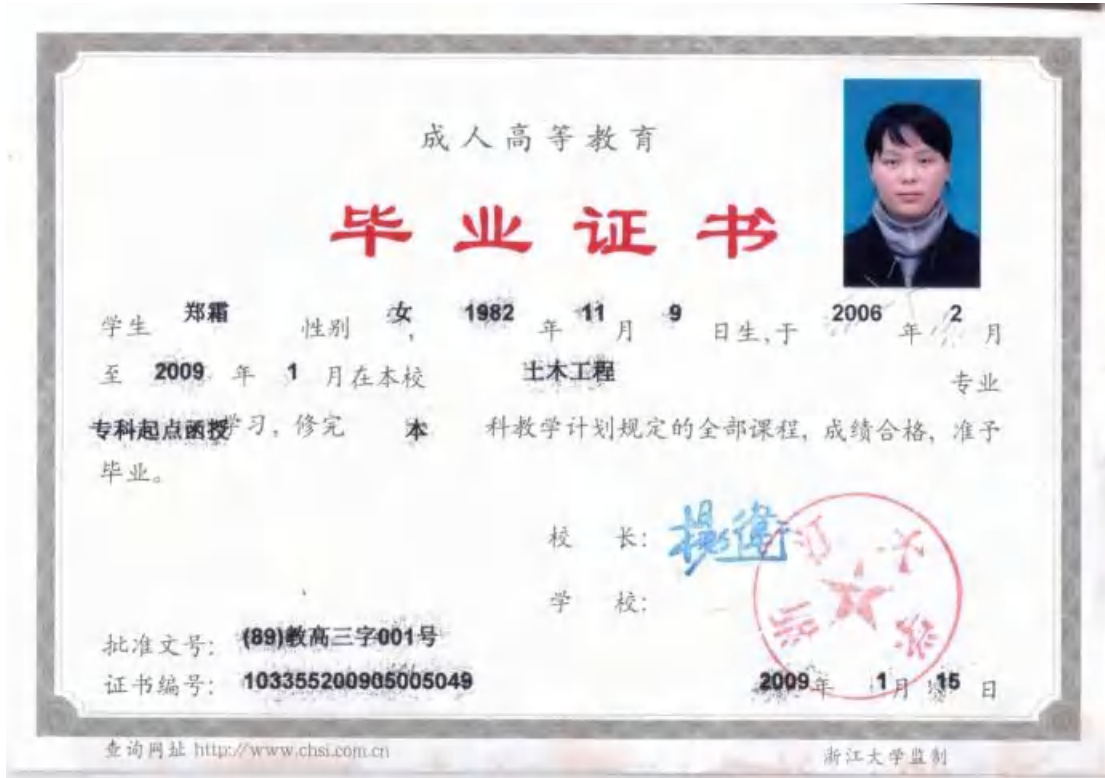 成人高等教育
毕业证书
学生 郑霜 性别 女, 1982 年 11 月 9 日生,于 2006 年 2 月
至 2009 年 1 月在本校 土木工程 专业
专科起点函授学习,修完 本 科教学计划规定的全部课程,成绩合格,准予
毕业。
校 长:
学 校:
浙江大学
批准文号: (89)教高三字001号
证书编号: 103355200905005049
2009 年 1 月 15 日
查询网址 http://www.chsi.com.cn
浙江大学监制